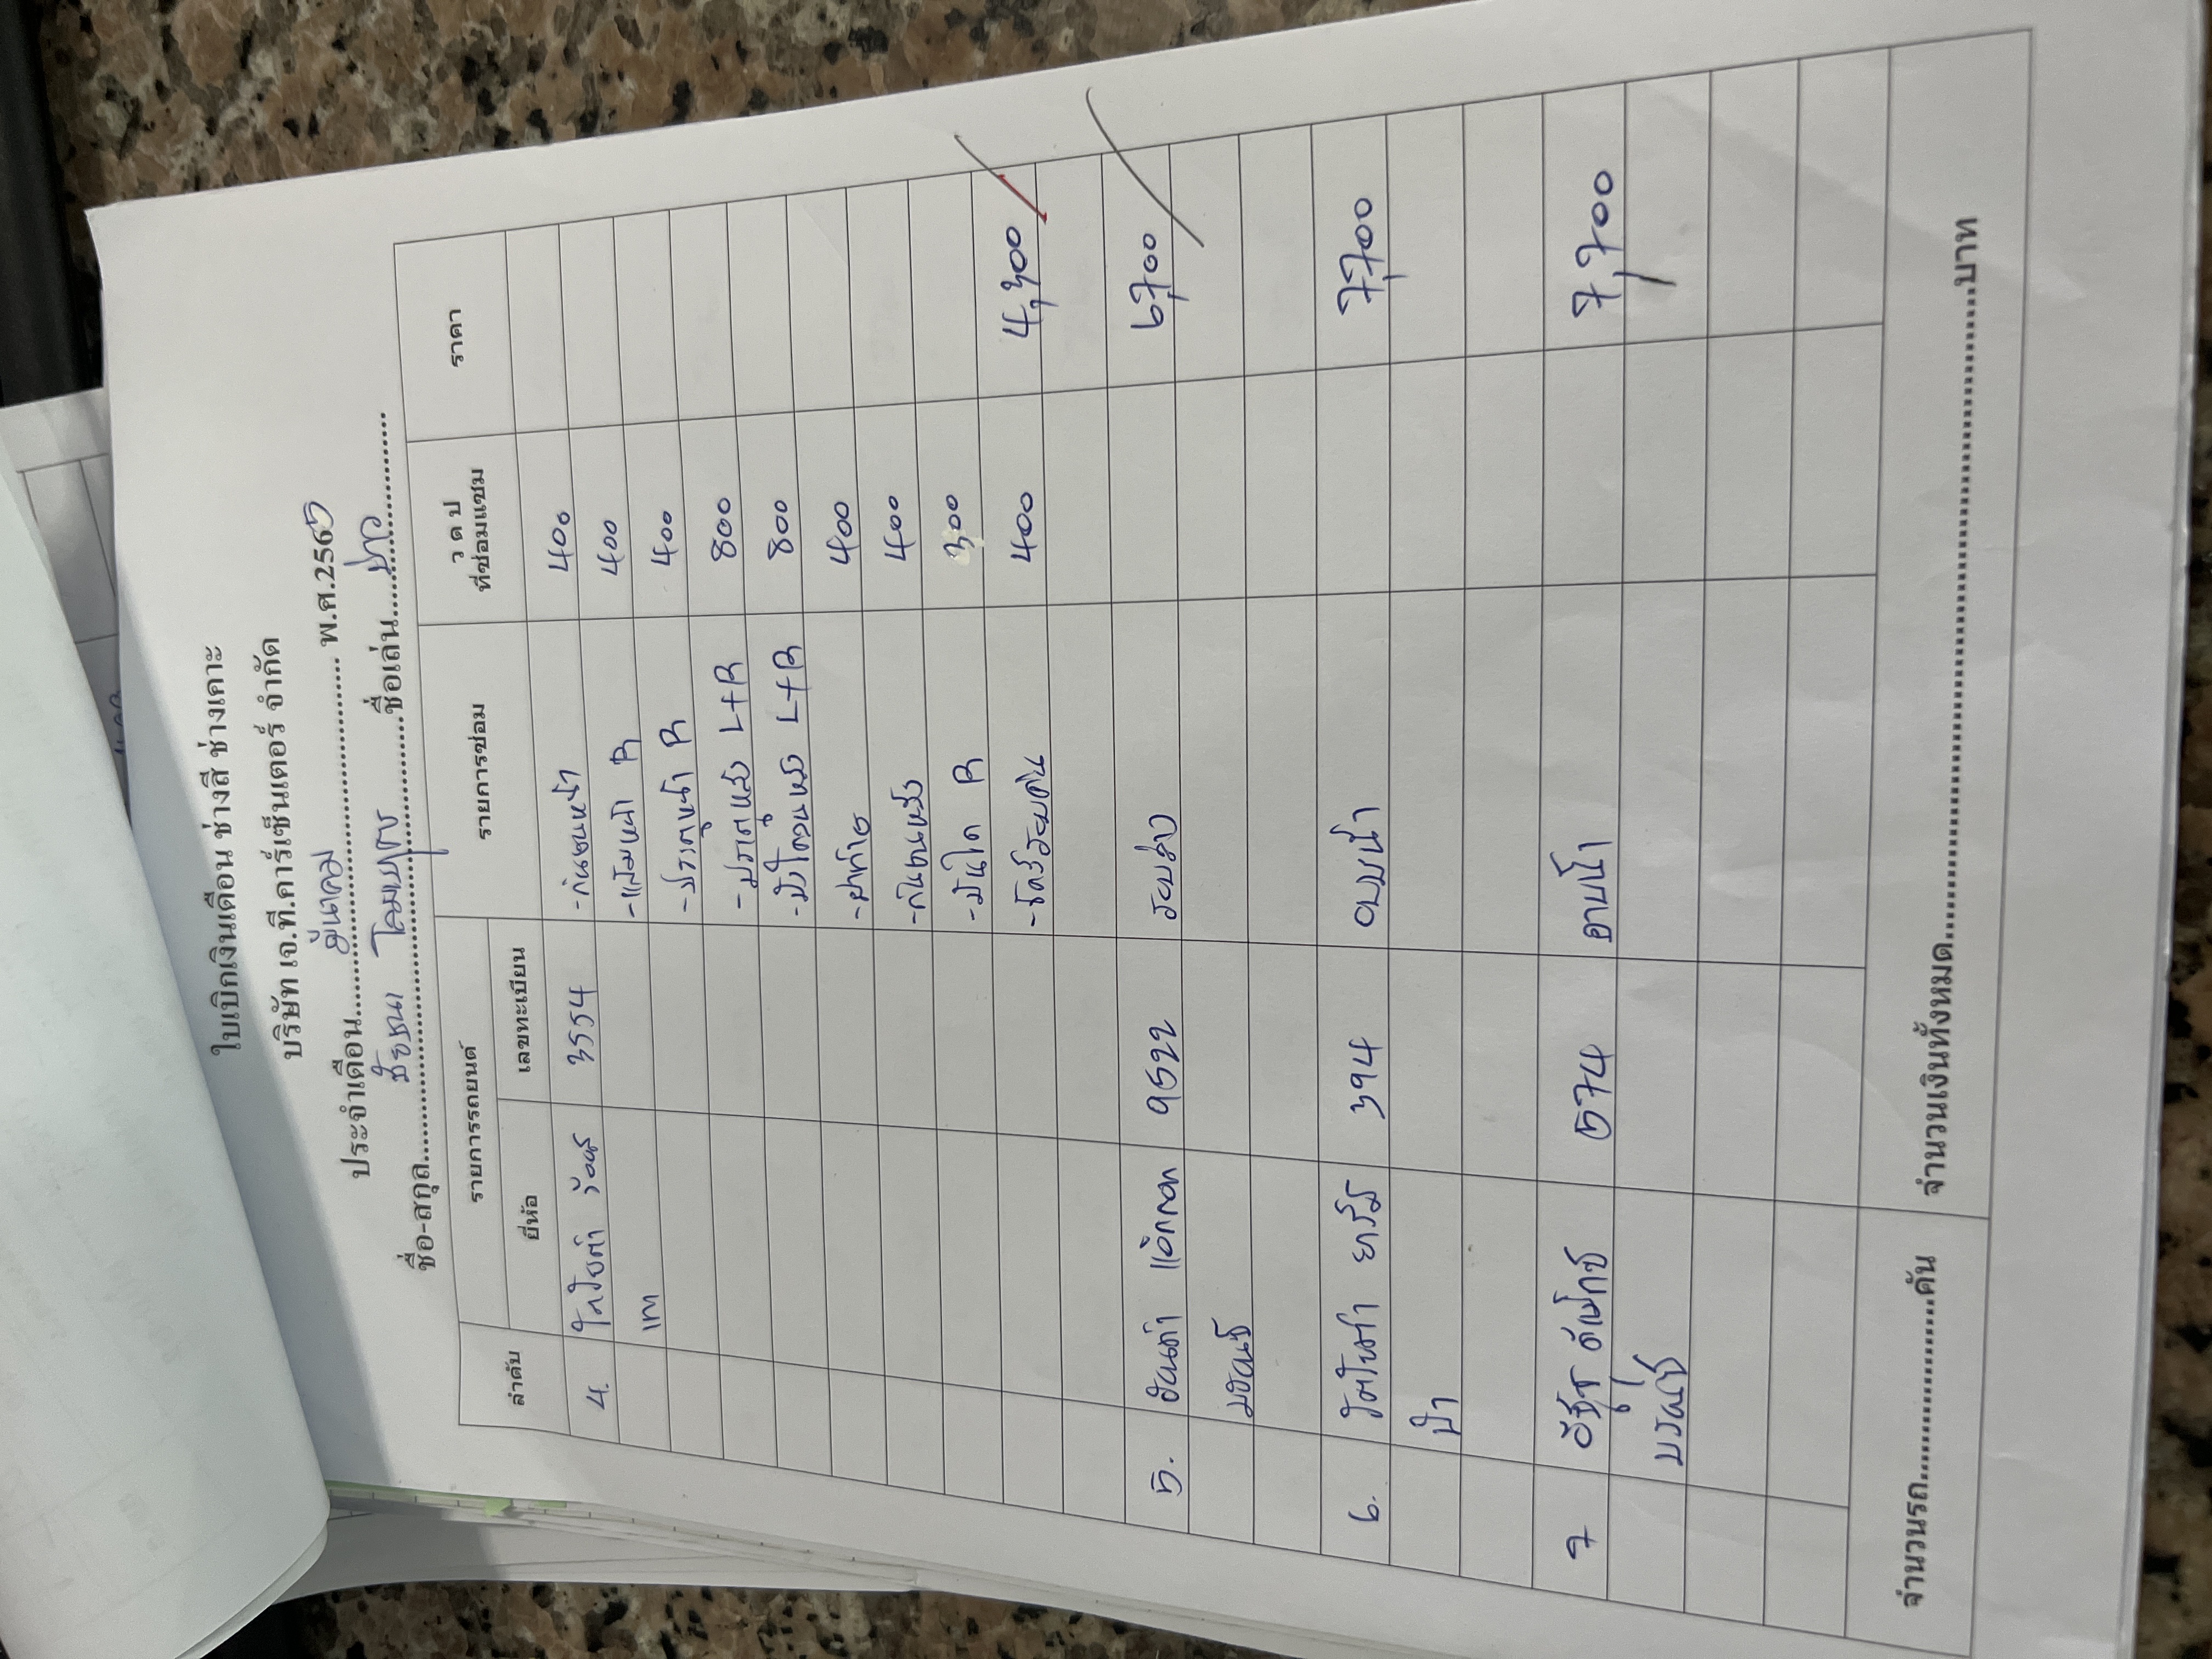 ใบเบิกเงินเดือน ช่างสี ช่างเคาะ
บริษัท เจ.ที.คาร์เซ็นเตอร์ จำกัด
ประจำเดือน......ธันวาคม...... พ.ศ.2565
ชื่อ-สกุล......ชัยชนะ......ชื่อเล่น......
ลำดับ รายการรถยนต์ รายการซ่อม ว ด ป ราคา
ยี่ห้อ เลขทะเบียน ที่ซ่อมแซม
4. โตโยต้า 3554 -กันชนหน้า 400
-แก้มหน้า R 400
-ประตูหน้า R 400
-ประตูหลัง L+R 800
-บังโคลนหลัง L+R 800
-ฝาท้าย 400
-กันชนหลัง 400
-บันได R 300
400 4,300
5. ฮอนด้า แอ๊กคอท 9522 รอบคัน 6,700
6. โตโยต้า ยาริส 394 อาบน้ำ 7,700
7 อีซูซุ ดีแม็กซ์ 574 อาบน้ำ 7,700
จำนวนรถ......คัน จำนวนเงินทั้งหมด......บาท